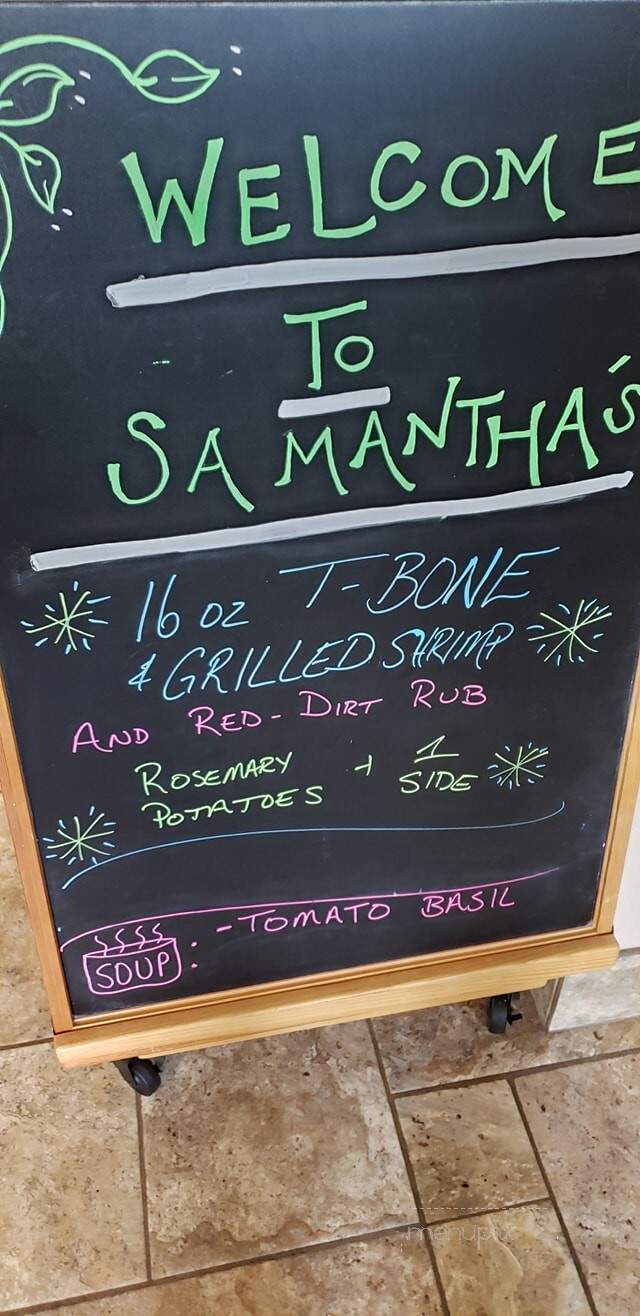 WELCOME
TO
SAMANTHA'S
16 oz T-BONE
& GRILLED SHRIMP
AND RED-DIRT RUB
ROSEMARY + 1
POTATOES SIDE
SOUP : - TOMATO BASIL
menupix